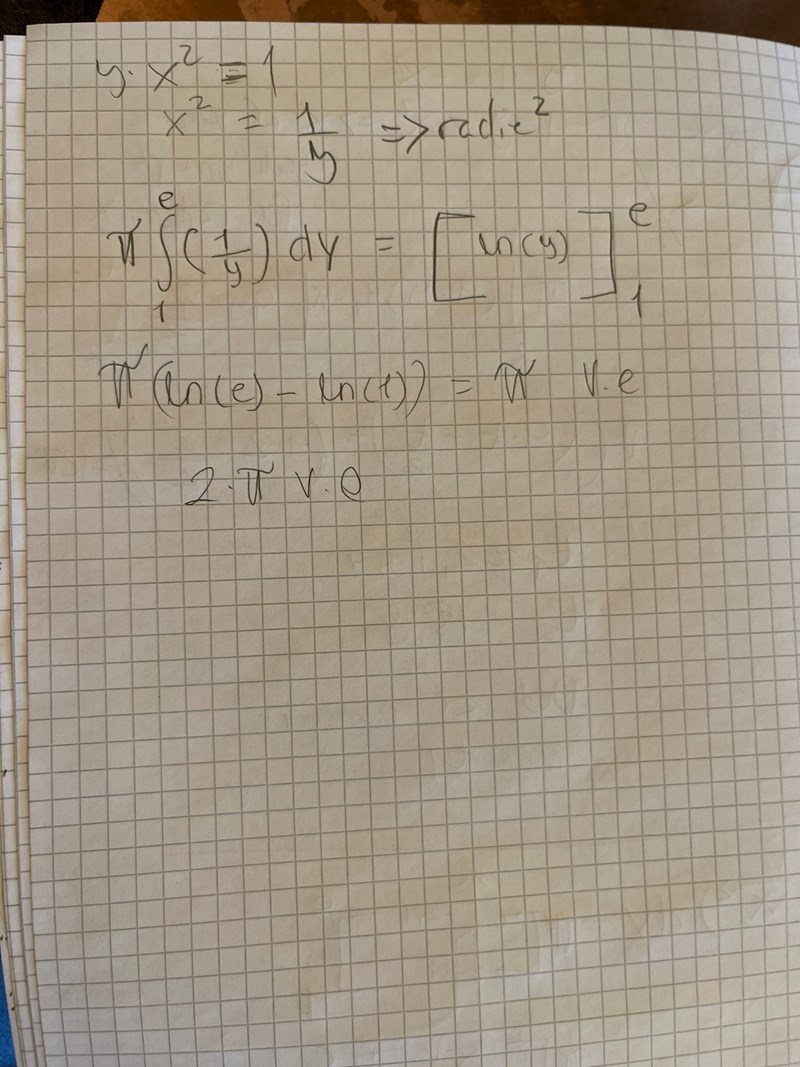 y · x² = 1
x² = 1/y => radie²
π ∫₁ᵉ (1/y) dy = [ln(y)]₁ᵉ
π(ln(e) - ln(1)) = π v.e
2·π v.e